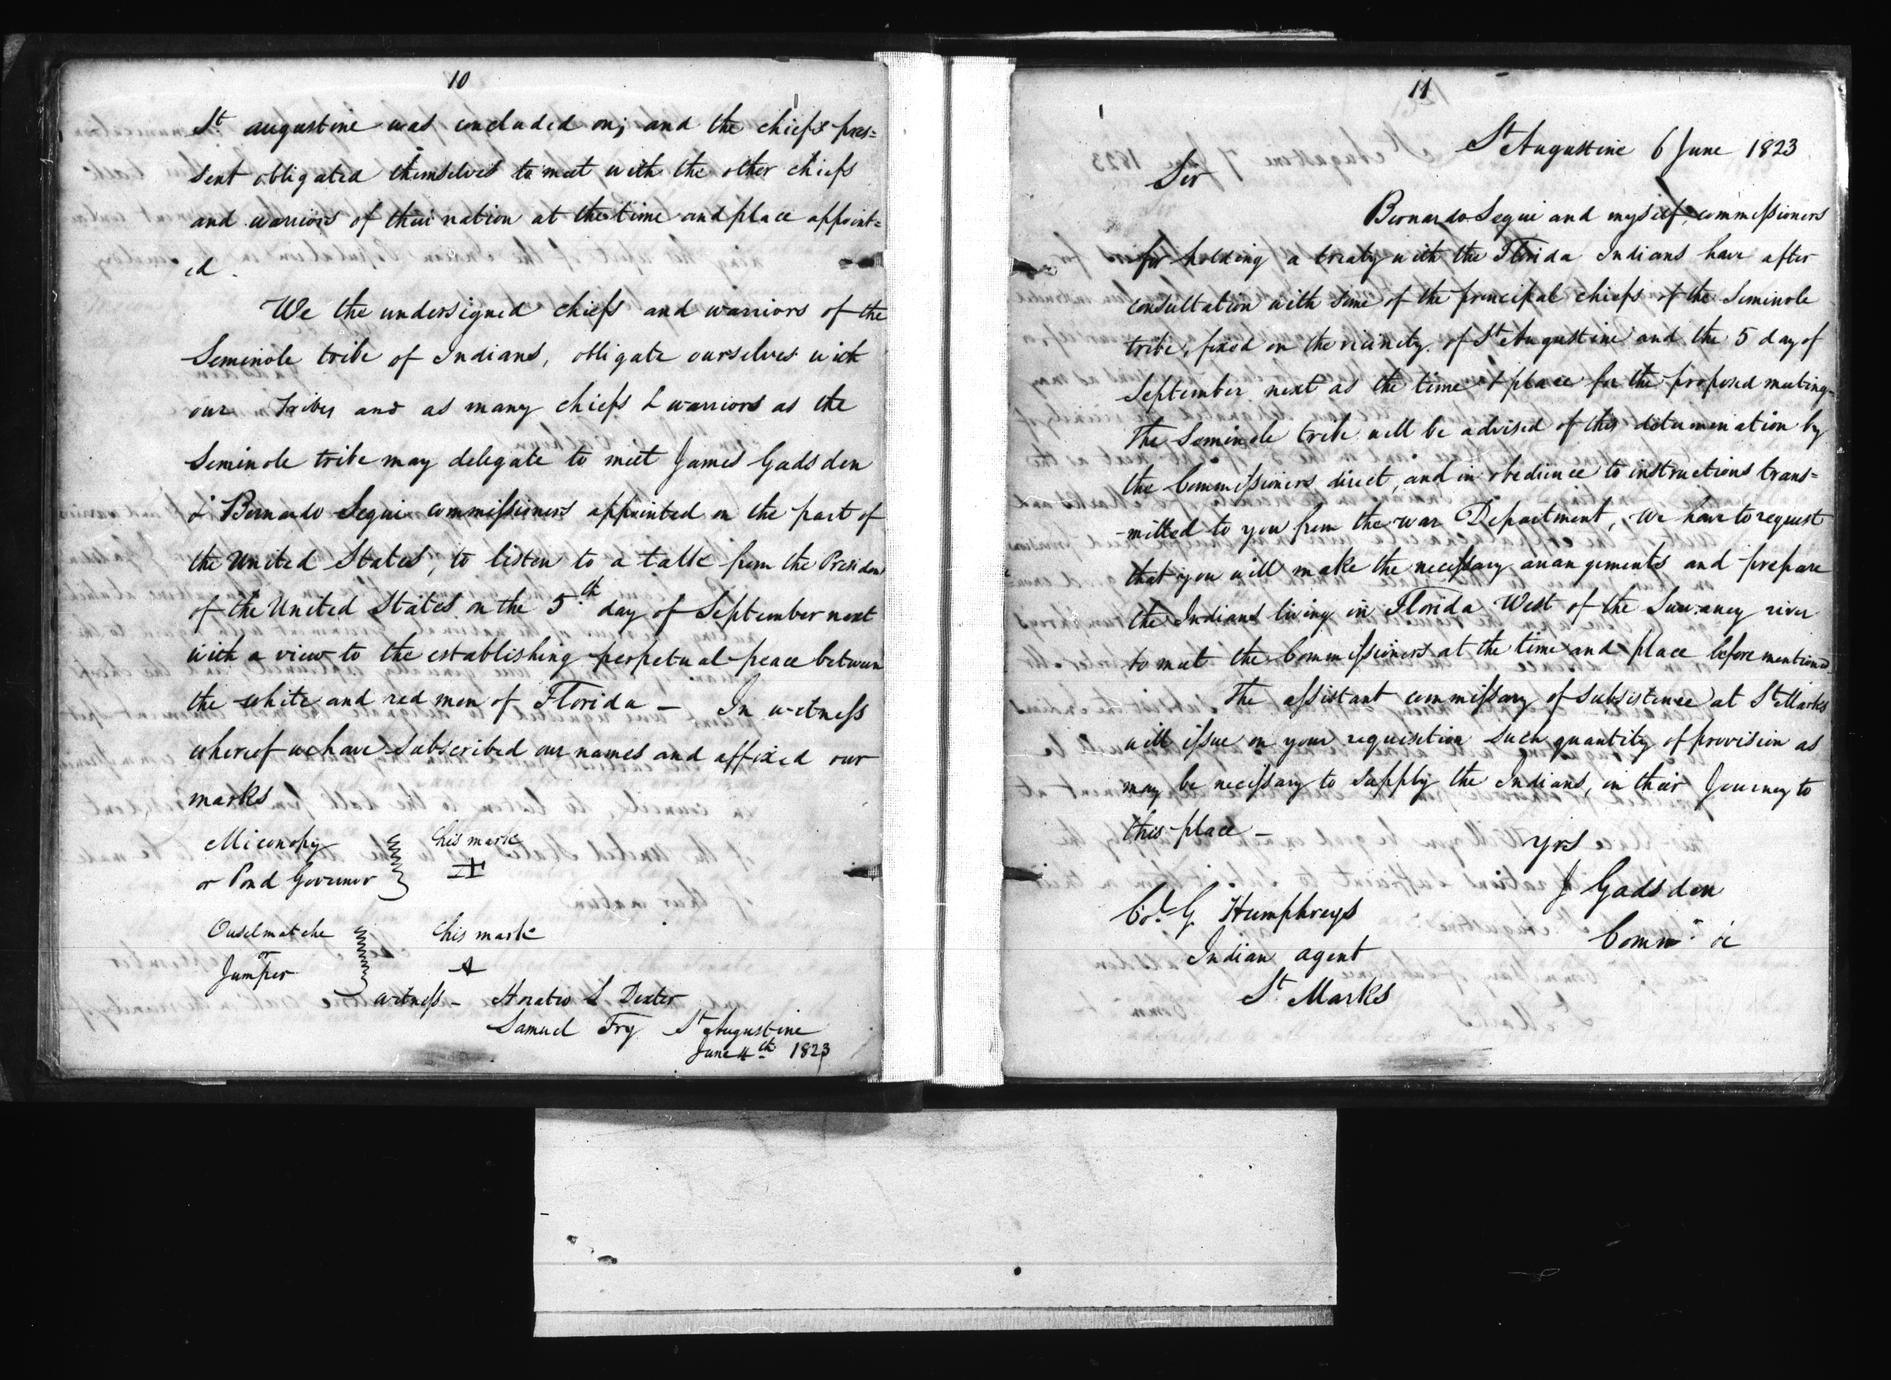 10
St. augustine was concluded on; and the chiefs pres=
sent obligated themselves to meet with the other chiefs
and warriors of their nation at the time and place appoint=
ed.
We the undersigned chiefs and warriors of the
Seminole tribe of Indians, obligate ourselves with
our Tribes and as many chiefs & warriors as the
Seminole tribe may delegate to meet James Gadsden
& Bernardo Segui commissioners appointed on the part of
the United States, to listen to a talk from the President
of the United States on the 5th day of September next
with a view to the establishing perpetual peace between
the white and red men of Florida — In witness
whereof we have subscribed our names and affixed our
marks
Miconopy his mark
or Pond Governor X
Ouselmatche his mark
or
Jumper
witness — Horatio S Dexter
Samuel Fry St Augustine
June 4th 1823
11
St Augustine 6 June 1823
Sir
Bernardo Segui and myself commissioners
for holding a treaty with the Florida Indians have after
consultation with some of the principal chiefs of the Seminole
tribe, fixed on the vicinity of St Augustine and the 5 day of
September next as the time & place for the proposed meeting-
The Seminole tribe will be advised of this determination by
the Commissioners direct, and in obedience to instructions trans=
-mitted to you from the war Department, we have to request
that you will make the necessary arrangements and prepare
the Indians living in Florida West of the Suwaney river
to meet the Commissioners at the time and place before mentioned
The assistant commissary of subsistence at St Marks
will issue on your requisition such quantity of provision as
may be necessary to supply the Indians, in their Journey to
this place —
yrs
J Gadsden
Comm
Col. G Humphreys
Indian agent
St Marks